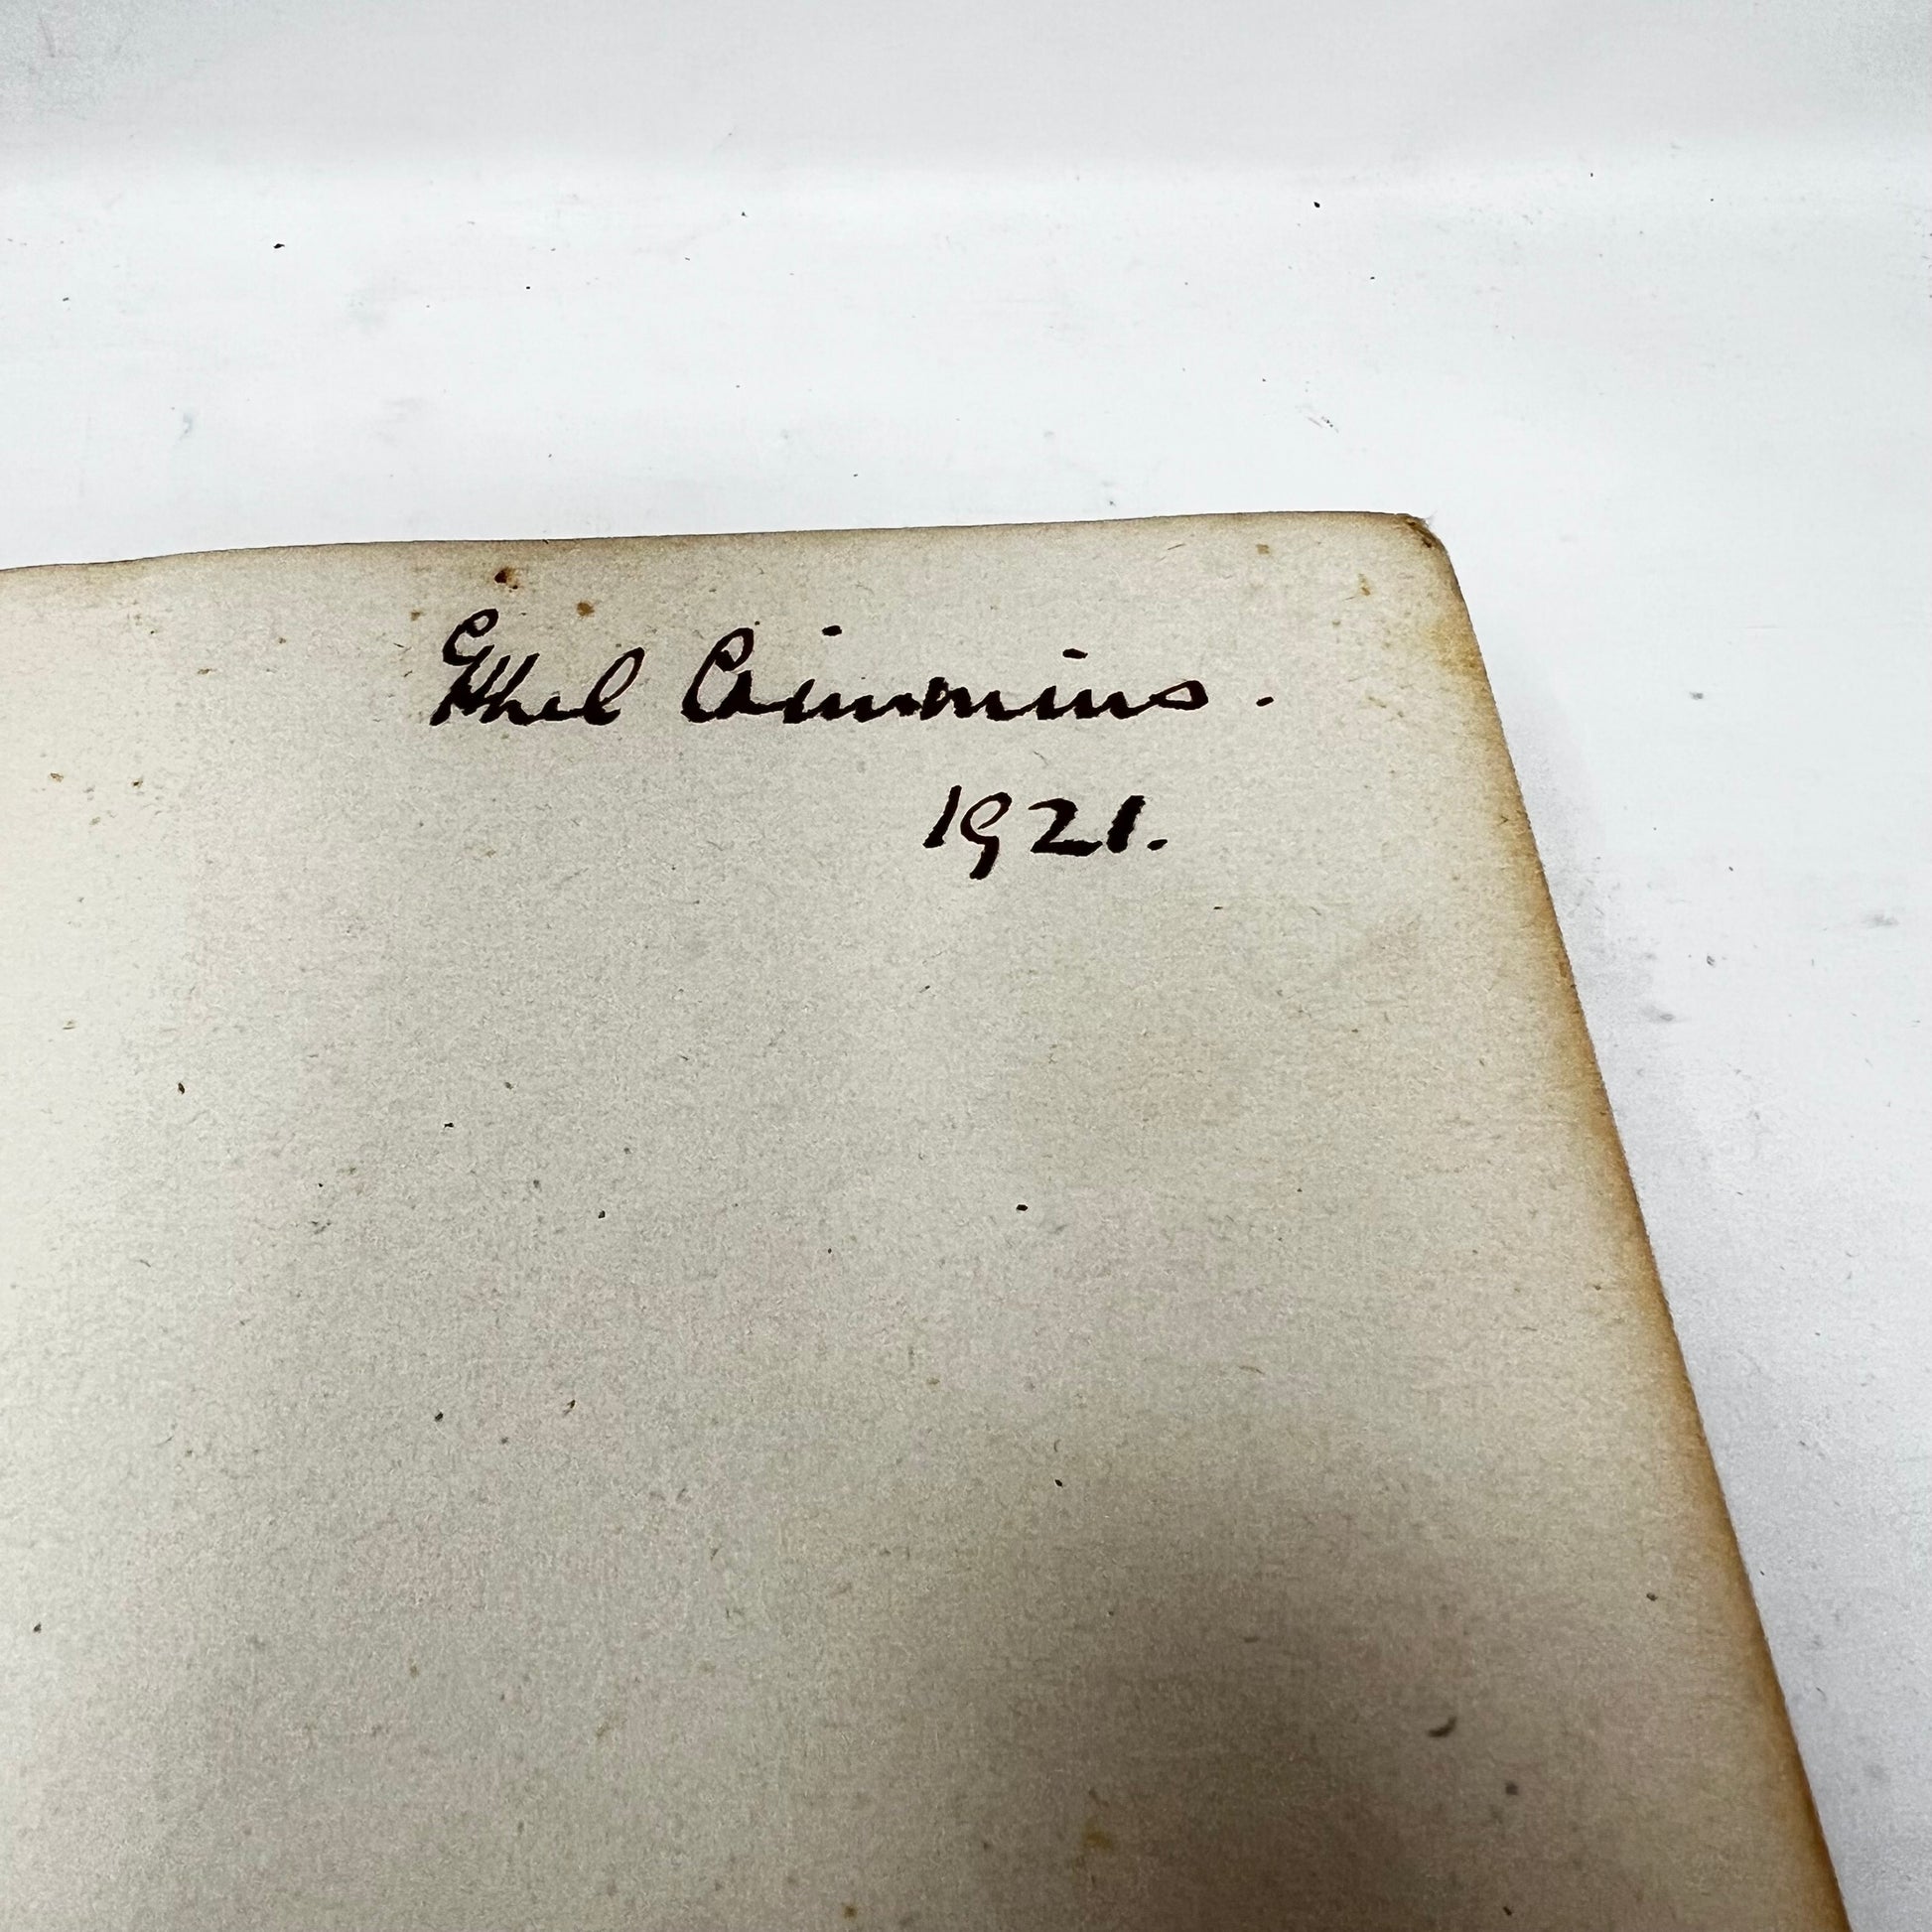 Ethel Crimmins.
1921.